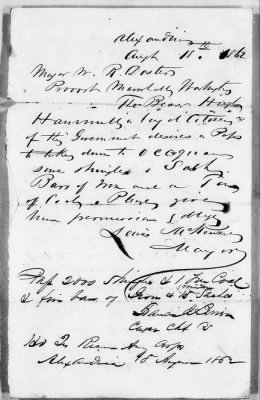 Alexandria
Augt 18th 1862
Major W. R. Doster
Provost Marshall Washington
The Bearer Hugh
Hammill a loyal Citizen
of this Government desires a Pass
to take down to Occoquan
some shingles & Sash
Bars of Iron and a Ton
of Coal &
him permission
Lewis McKenzie
Mayor
Pass 2000 Shingles & 1 Ton Coal
& five bars of Iron 4 Sashes
Capt
Hd Qr Army Corps
Alexandria 18 August 1862